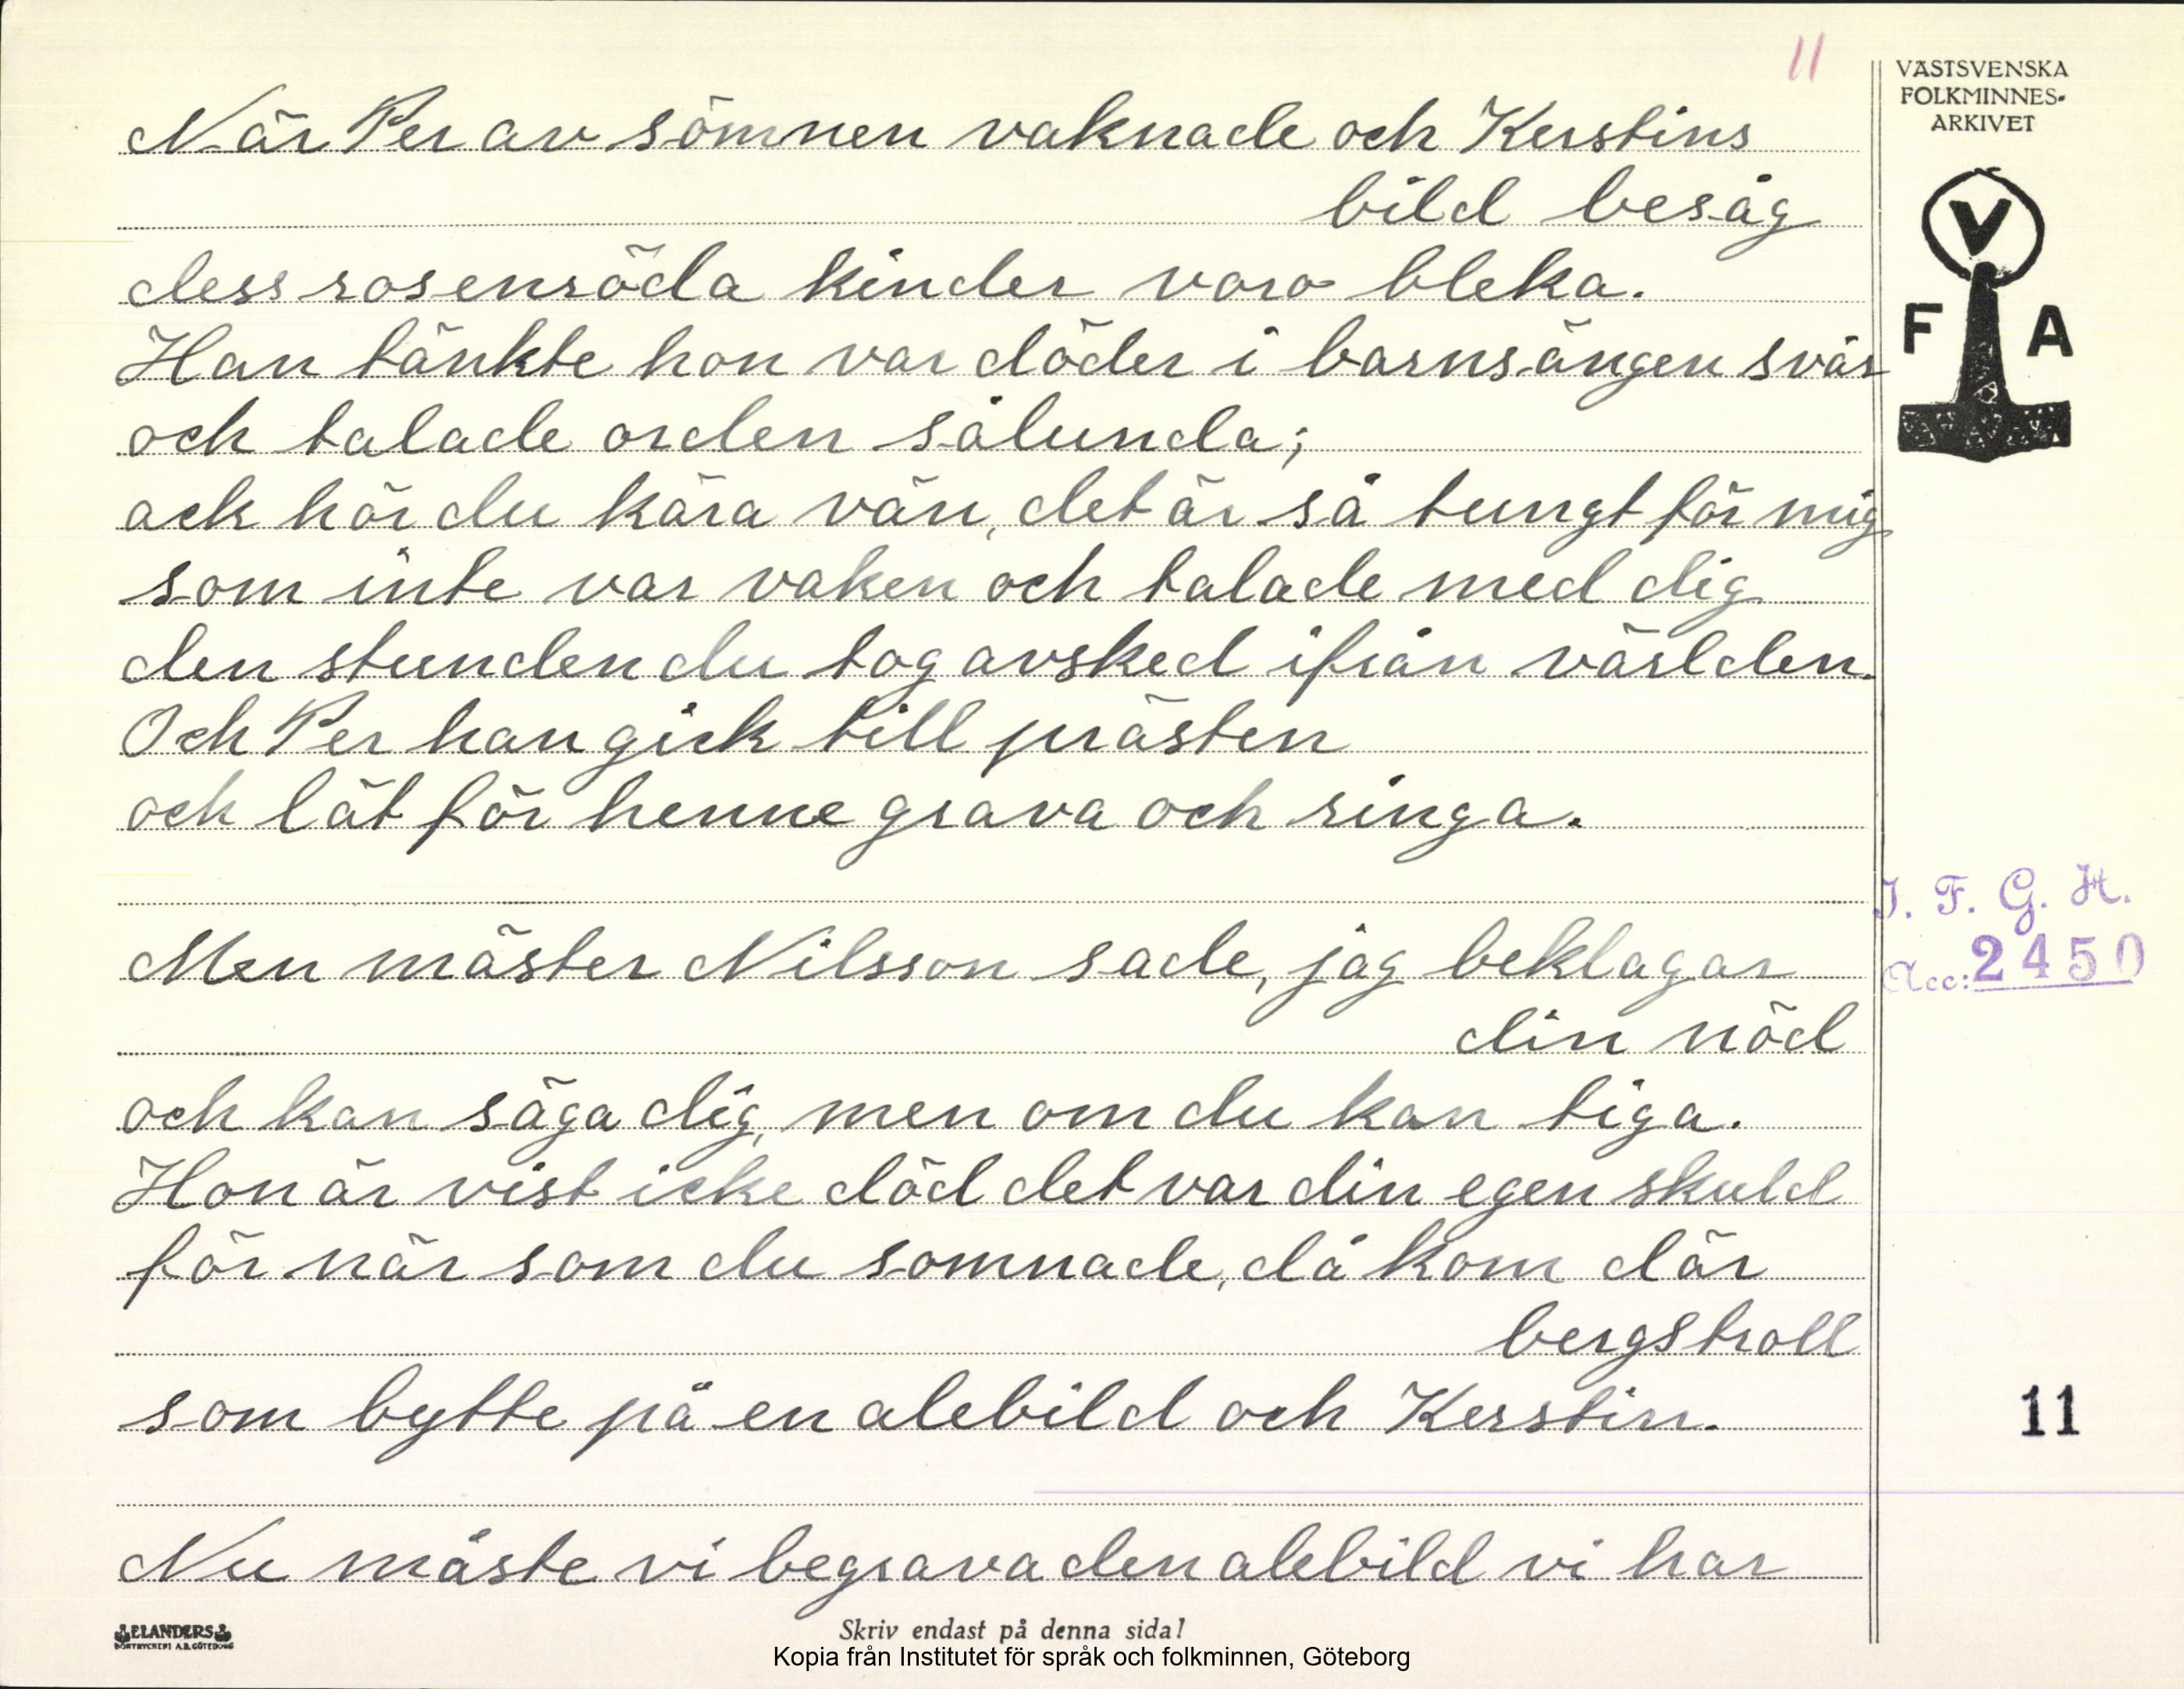 11
VÄSTSVENSKA
FOLKMINNES-
ARKIVET
V
F A
När Per av sömnen vaknade och Kerstins
bild besåg
dess rosenröda kinder voro bleka.
Han tänkte hon var döder i barnsängen svår
och talade orden sålunda;
ack hör du kära vän, det är så tungt för mig
som inte var vaken och talade med dig
den stunden du tog avsked ifrån världen.
Och Per han gick till prästen
och lät för henne grava och ringa.
I. F. G. H.
Acc: 2450
Men mäster Nilsson sade, jag beklagar
din nöd
och kan säga dig, men om du kan tiga.
Hon är vist icke död det var din egen skuld
för när som du somnade, då kom där
bergstroll
som bytte på en alebild och Kerstin.
11
Nu måste vi begrava den alebild vi har
ELANDERS
BOKTRYCKERI A.B. GÖTEBORG
Skriv endast på denna sida!
Kopia från Institutet för språk och folkminnen, Göteborg